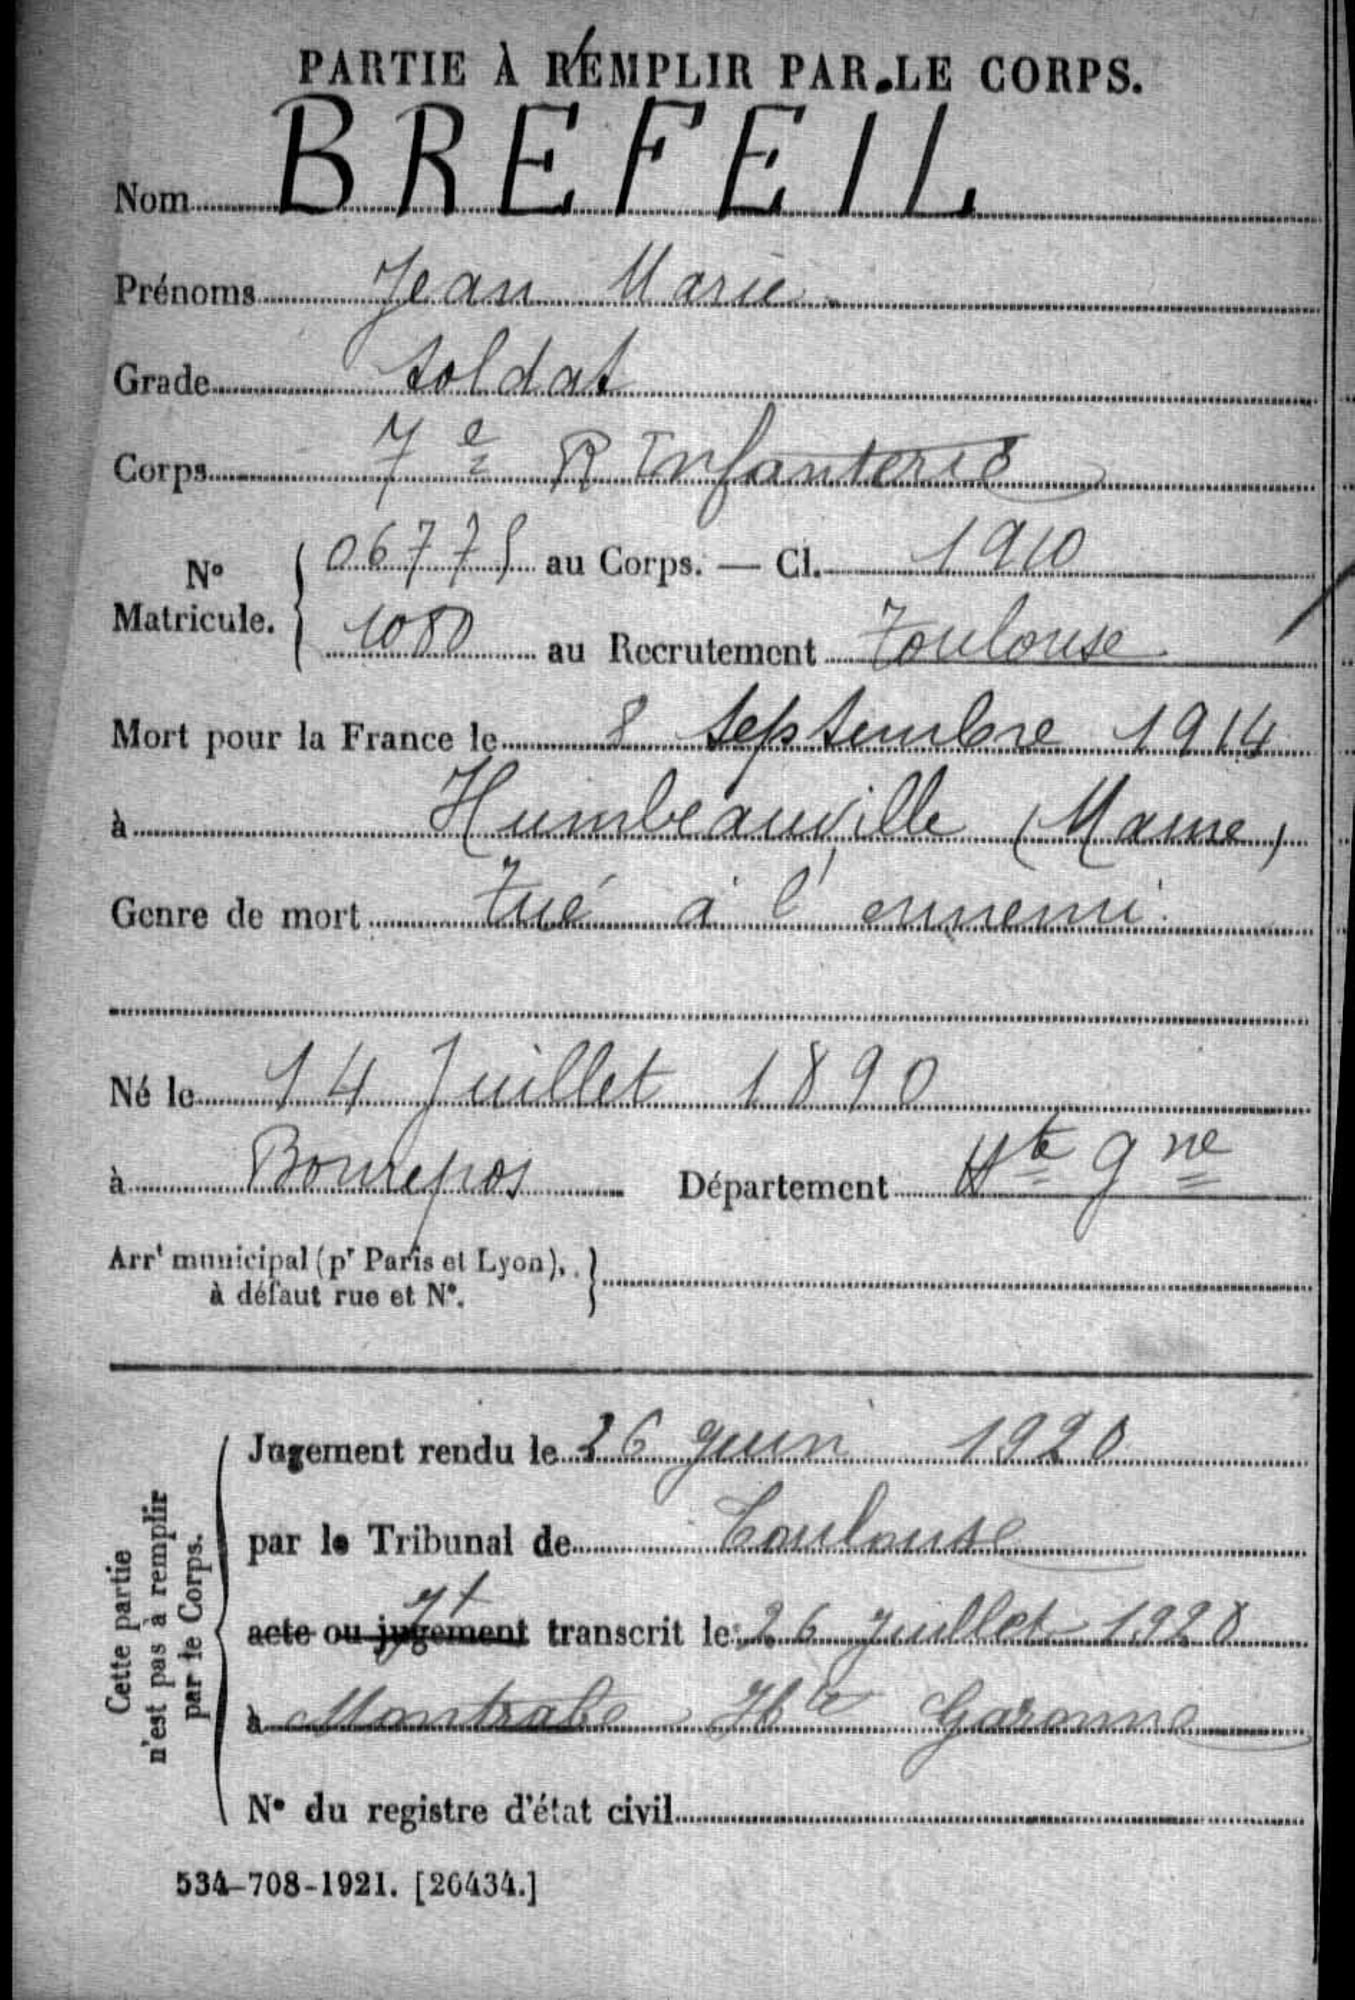 PARTIE À REMPLIR PAR LE CORPS.
Nom BREFEIL
Prénoms Jean Marie
Grade soldat
Corps 7e R Infanterie
N° Matricule. 06775 au Corps. — Cl. 1910
1080 au Recrutement Toulouse
Mort pour la France le 8 septembre 1914
à Humbeauville (Marne)
Genre de mort tué à l'ennemi
Né le 14 Juillet 1890
à Bourepos Département Hte Gne
Arrt municipal (pr Paris et Lyon),
à défaut rue et N°.
Cette partie
n'est pas à remplir
par le Corps.
Jugement rendu le 26 juin 1920
par le Tribunal de Toulouse
acte ou jugement jt transcrit le 26 juillet 1920
à Montrabe Hte Garonne
N° du registre d'état civil
534-708-1921. [26434.]